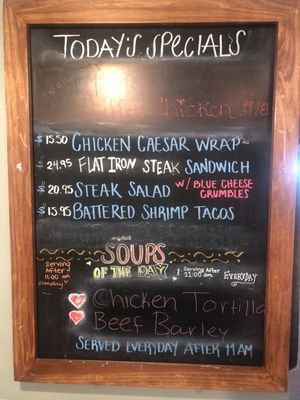 TODAY'S SPECIALS
Chicken $18
$15.50 CHICKEN CAESAR WRAP
$24.95 FLAT IRON STEAK SANDWICH
$20.95 STEAK SALAD W/ BLUE CHEESE CRUMBLES
$15.95 BATTERED SHRIMP TACOS
SOUPS OF THE DAY
Serving After 11:00 am Everyday
Serving After 11:00 am EVERYDAY
Chicken Tortilla
Beef Barley
SERVED EVERYDAY AFTER 11 AM